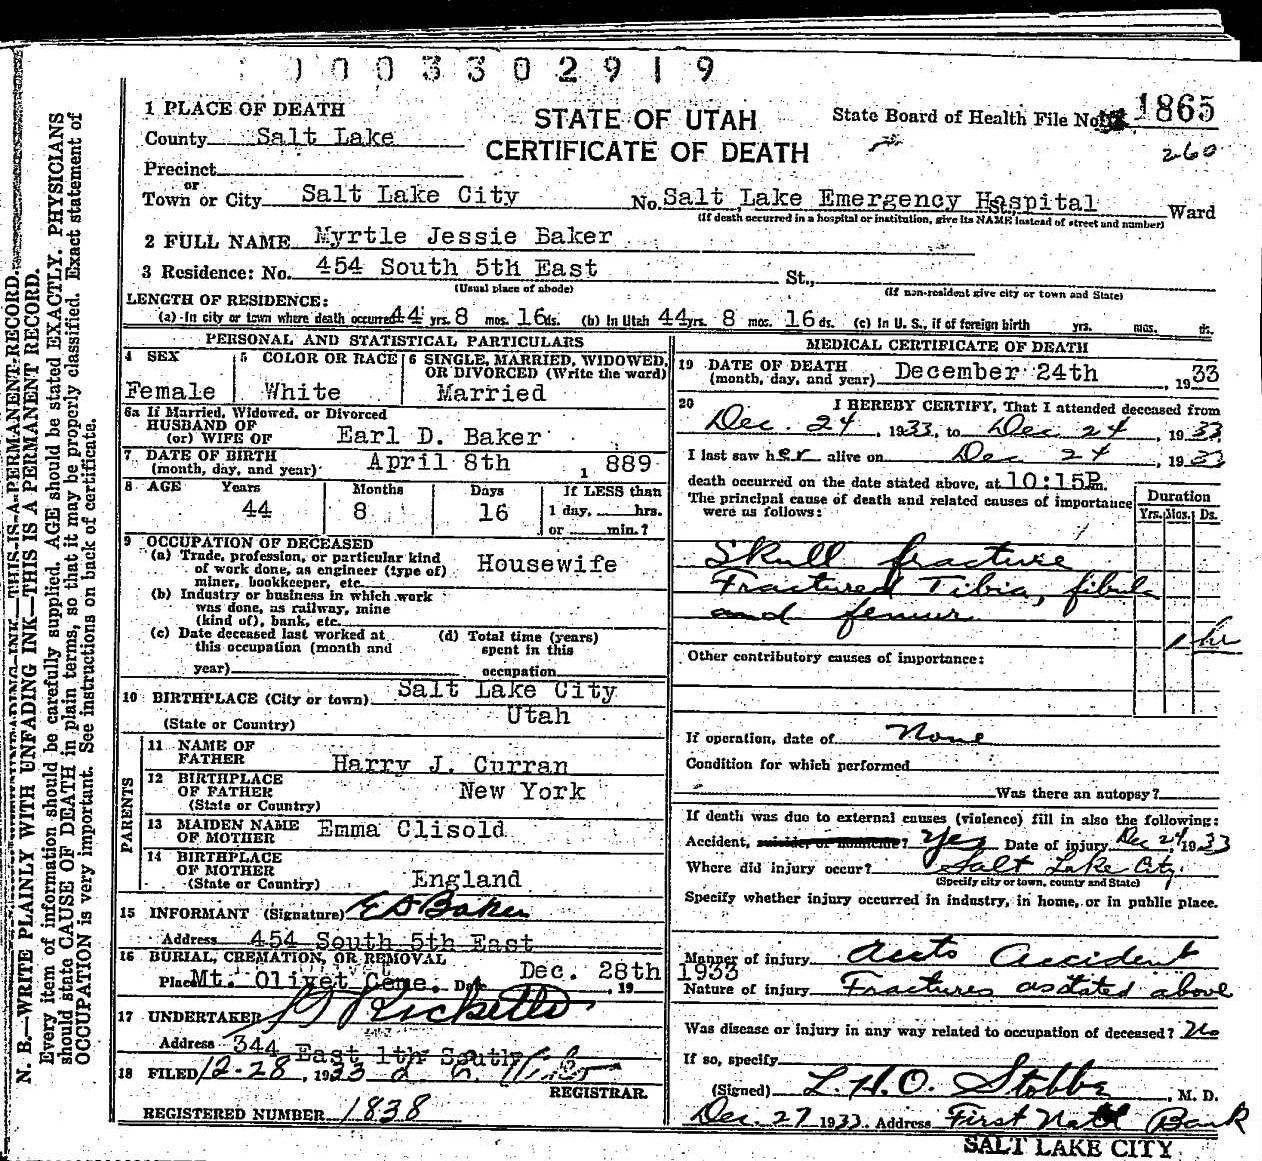 1003302919
1 PLACE OF DEATH
STATE OF UTAH
CERTIFICATE OF DEATH
State Board of Health File No. 1865
260
County Salt Lake
Precinct
or
Town or City Salt Lake City No. Salt Lake Emergency Hospital St., Ward
(If death occurred in a hospital or institution, give its NAME instead of street and number)
2 FULL NAME Myrtle Jessie Baker
3 Residence: No. 454 South 5th East St.,
(Usual place of abode) (If non-resident give city or town and State)
LENGTH OF RESIDENCE:
(a) In city or town where death occurred 44 yrs. 8 mos. 16 ds. (b) In Utah 44 yrs. 8 mos. 16 ds. (c) In U. S., if of foreign birth yrs. mos. ds.
PERSONAL AND STATISTICAL PARTICULARS
4 SEX
Female
5 COLOR OR RACE
White
6 SINGLE, MARRIED, WIDOWED,
OR DIVORCED (Write the word)
Married
6a If Married, Widowed, or Divorced
HUSBAND OF
(or) WIFE OF Earl D. Baker
7 DATE OF BIRTH
(month, day, and year) April 8th 1889
8 AGE Years Months Days If LESS than
44 8 16 1 day, hrs.
or min.?
9 OCCUPATION OF DECEASED
(a) Trade, profession, or particular kind
of work done, as engineer (type of)
miner, bookkeeper, etc. Housewife
(b) Industry or business in which work
was done, as railway, mine
(kind of), bank, etc.
(c) Date deceased last worked at
this occupation (month and
year)
(d) Total time (years)
spent in this
occupation
10 BIRTHPLACE (City or town) Salt Lake City
(State or Country) Utah
PARENTS
11 NAME OF
FATHER Harry J. Curran
12 BIRTHPLACE
OF FATHER New York
(State or Country)
13 MAIDEN NAME
OF MOTHER Emma Clisold
14 BIRTHPLACE
OF MOTHER
(State or Country) England
15 INFORMANT (Signature) E D Baker
Address 454 South 5th East
16 BURIAL, CREMATION, OR REMOVAL
Place Mt. Olivet Ceme. Date Dec. 28th, 19 1933
17 UNDERTAKER Ricketts
Address 344 East 1th South
18 FILED 12-28, 1933
REGISTRAR.
REGISTERED NUMBER 1838
MEDICAL CERTIFICATE OF DEATH
19 DATE OF DEATH
(month, day, and year) December 24th, 1933
20 I HEREBY CERTIFY, That I attended deceased from
Dec. 24, 1933, to Dec 24, 1933
I last saw her alive on Dec 24, 1933
death occurred on the date stated above, at 10:15P.m.
The principal cause of death and related causes of importance
were as follows:
Duration
Yrs. Mos. Ds.
Skull fracture
Fractured Tibia, fibula
and femur
1 hr
Other contributory causes of importance:
If operation, date of None
Condition for which performed
Was there an autopsy?
If death was due to external causes (violence) fill in also the following:
Accident, suicide or homicide? Yes Date of injury Dec 24 1933
Where did injury occur? Salt Lake City
(Specify city or town, county and State)
Specify whether injury occurred in industry, in home, or in public place.
Manner of injury Auto Accident
Nature of injury Fractures as stated above
Was disease or injury in any way related to occupation of deceased? No
If so, specify
(Signed) L. H. O. Stobbe, M. D.
Dec. 27 1933. Address First Natl Bank
SALT LAKE CITY
N. B.—WRITE PLAINLY WITH UNFADING INK—THIS IS A PERMANENT RECORD.
Every item of information should be carefully supplied. AGE should be stated EXACTLY. PHYSICIANS
should state CAUSE OF DEATH in plain terms, so that it may be properly classified. Exact statement of
OCCUPATION is very important. See instructions on back of certificate.